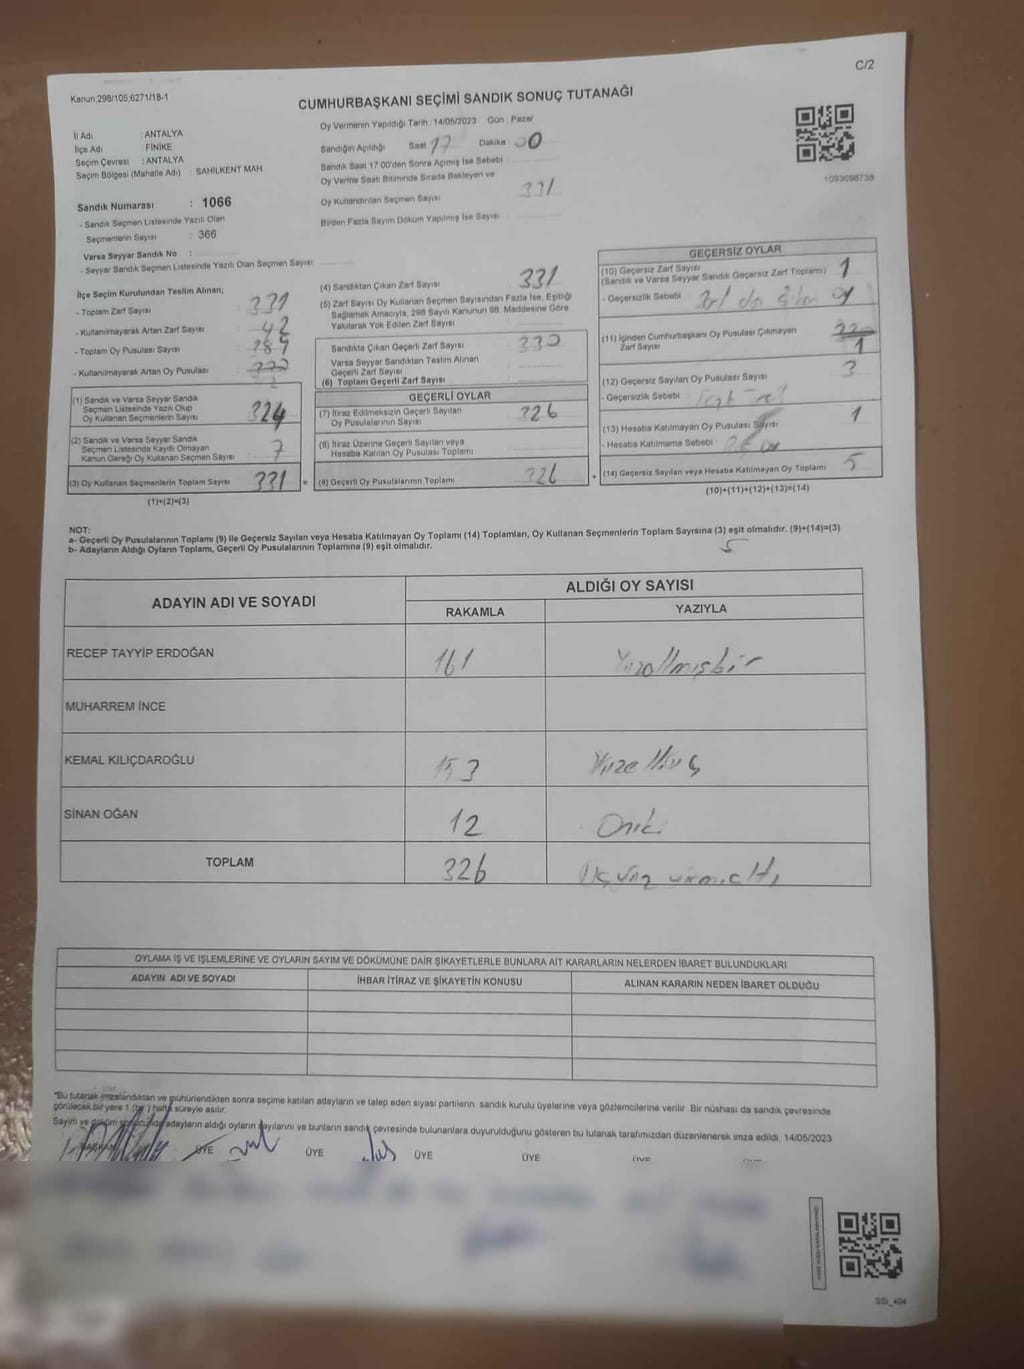 C/2
Kanun.298/105,6271/18-1
CUMHURBAŞKANI SEÇİMİ SANDIK SONUÇ TUTANAĞI
İl Adı : ANTALYA
İlçe Adı : FİNİKE
Seçim Çevresi : ANTALYA
Seçim Bölgesi (Mahalle Adı) : SAHİLKENT MAH.
Sandık Numarası : 1066
- Sandık Seçmen Listesinde Yazılı Olan
Seçmenlerin Sayısı : 366
Varsa Seyyar Sandık No :
- Seyyar Sandık Seçmen Listesinde Yazılı Olan Seçmen Sayısı:
Oy Vermenin Yapıldığı Tarih :14/05/2023 Gün : Pazar
Sandığın Açıldığı Saat 17 Dakika : 00
Sandık Saat 17.00'den Sonra Açılmış İse Sebebi
Oy Verme Saati Bitiminde Sırada Bekleyen ve
Oy Kullandırılan Seçmen Sayısı 331
Birden Fazla Sayım Döküm Yapılmış İse Sayısı
1093698738
İlçe Seçim Kurulundan Teslim Alınan;
- Toplam Zarf Sayısı : 331
- Kullanılmayarak Artan Zarf Sayısı : 42
- Toplam Oy Pusulası Sayısı :
- Kullanılmayarak Artan Oy Pusulası :
(1) Sandık ve Varsa Seyyar Sandık
Seçmen Listesinde Yazılı Olup
Oy Kullanan Seçmenlerin Sayısı : 324
(2) Sandık ve Varsa Seyyar Sandık
Seçmen Listesinde Kayıtlı Olmayan
Kanun Gereği Oy Kullanan Seçmen Sayısı : 7
(3) Oy Kullanan Seçmenlerin Toplam Sayısı : 331 =
(1)+(2)=(3)
(4) Sandıktan Çıkan Zarf Sayısı : 331
(5) Zarf Sayısı Oy Kullanan Seçmen Sayısından Fazla İse, Eşitliği
Sağlamak Amacıyla, 298 Sayılı Kanunun 98. Maddesine Göre
Yakılarak Yok Edilen Zarf Sayısı :
Sandıkta Çıkan Geçerli Zarf Sayısı : 330
Varsa Seyyar Sandıktan Teslim Alınan
Geçerli Zarf Sayısı :
(6) Toplam Geçerli Zarf Sayısı :
GEÇERLİ OYLAR
(7) İtiraz Edilmeksizin Geçerli Sayılan
Oy Pusulasının Sayısı : 326
(8) İtiraz Üzerine Geçerli Sayılan veya
Hesaba Katılan Oy Pusulası Toplamı :
(9) Geçerli Oy Pusulalarının Toplamı : 326 +
GEÇERSİZ OYLAR
(10) Geçersiz Zarf Sayısı
(Sandık ve Varsa Seyyar Sandık Geçersiz Zarf Toplamı) : 1
- Geçersizlik Sebebi : oy
(11) İçinden Cumhurbaşkanı Oy Pusulası Çıkmayan
Zarf Sayısı : 1
(12) Geçersiz Sayılan Oy Pusulası Sayısı : 3
- Geçersizlik Sebebi :
(13) Hesaba Katılmayan Oy Pusulası Sayısı : 1
- Hesaba Katılmama Sebebi :
(14) Geçersiz Sayılan veya Hesaba Katılmayan Oy Toplamı : 5
(10)+(11)+(12)+(13)=(14)
NOT:
a- Geçerli Oy Pusulalarının Toplamı (9) ile Geçersiz Sayılan veya Hesaba Katılmayan Oy Toplamı (14) Toplamları, Oy Kullanan Seçmenlerin Toplam Sayısına (3) eşit olmalıdır. (9)+(14)=(3)
b- Adayların Aldığı Oyların Toplamı, Geçerli Oy Pusulalarının Toplamına (9) eşit olmalıdır.
5
ADAYIN ADI VE SOYADI
ALDIĞI OY SAYISI
RAKAMLA YAZIYLA
RECEP TAYYİP ERDOĞAN 161 Yüzaltmışbir
MUHARREM İNCE
KEMAL KILIÇDAROĞLU 153 Yüzelliüç
SİNAN OĞAN 12 Oniki
TOPLAM 326 Üçyüz yirmialtı
OYLAMA İŞ VE İŞLEMLERİNE VE OYLARIN SAYIM VE DÖKÜMÜNE DAİR ŞİKAYETLERLE BUNLARA AİT KARARLARIN NELERDEN İBARET BULUNDUKLARI
ADAYIN ADI VE SOYADI İHBAR İTİRAZ VE ŞİKAYETİN KONUSU ALINAN KARARIN NEDEN İBARET OLDUĞU
"Bu tutanak imzalandıktan ve mühürlendikten sonra seçime katılan adayların ve talep eden siyasi partilerin sandık kurulu üyelerine veya gözlemcilerine verilir. Bir nüshası da sandık çevresinde
görülecek bir yere 1 (bir) hafta süreyle asılır.
Sayım ve döküm sonucunda adayların aldığı oyların sayılarını ve bunların sandık çevresinde bulunanlara duyurulduğunu gösteren bu tutanak tarafımızdan düzenlenerek imza edildi. 14/05/2023
ÜYE ÜYE ÜYE ÜYE ÜYE
SSİ_404